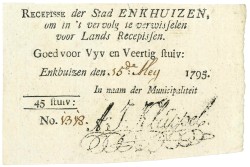 RECEPISSE der Stad ENKHUIZEN,
om in 't vervolg te verwisselen
voor Lands Recepissen.
Goed voor Vyv en Veertig stuiv:
Enkhuizen den 15de Mey 1795.
In naam der Municipaliteit
45 stuiv:
No.